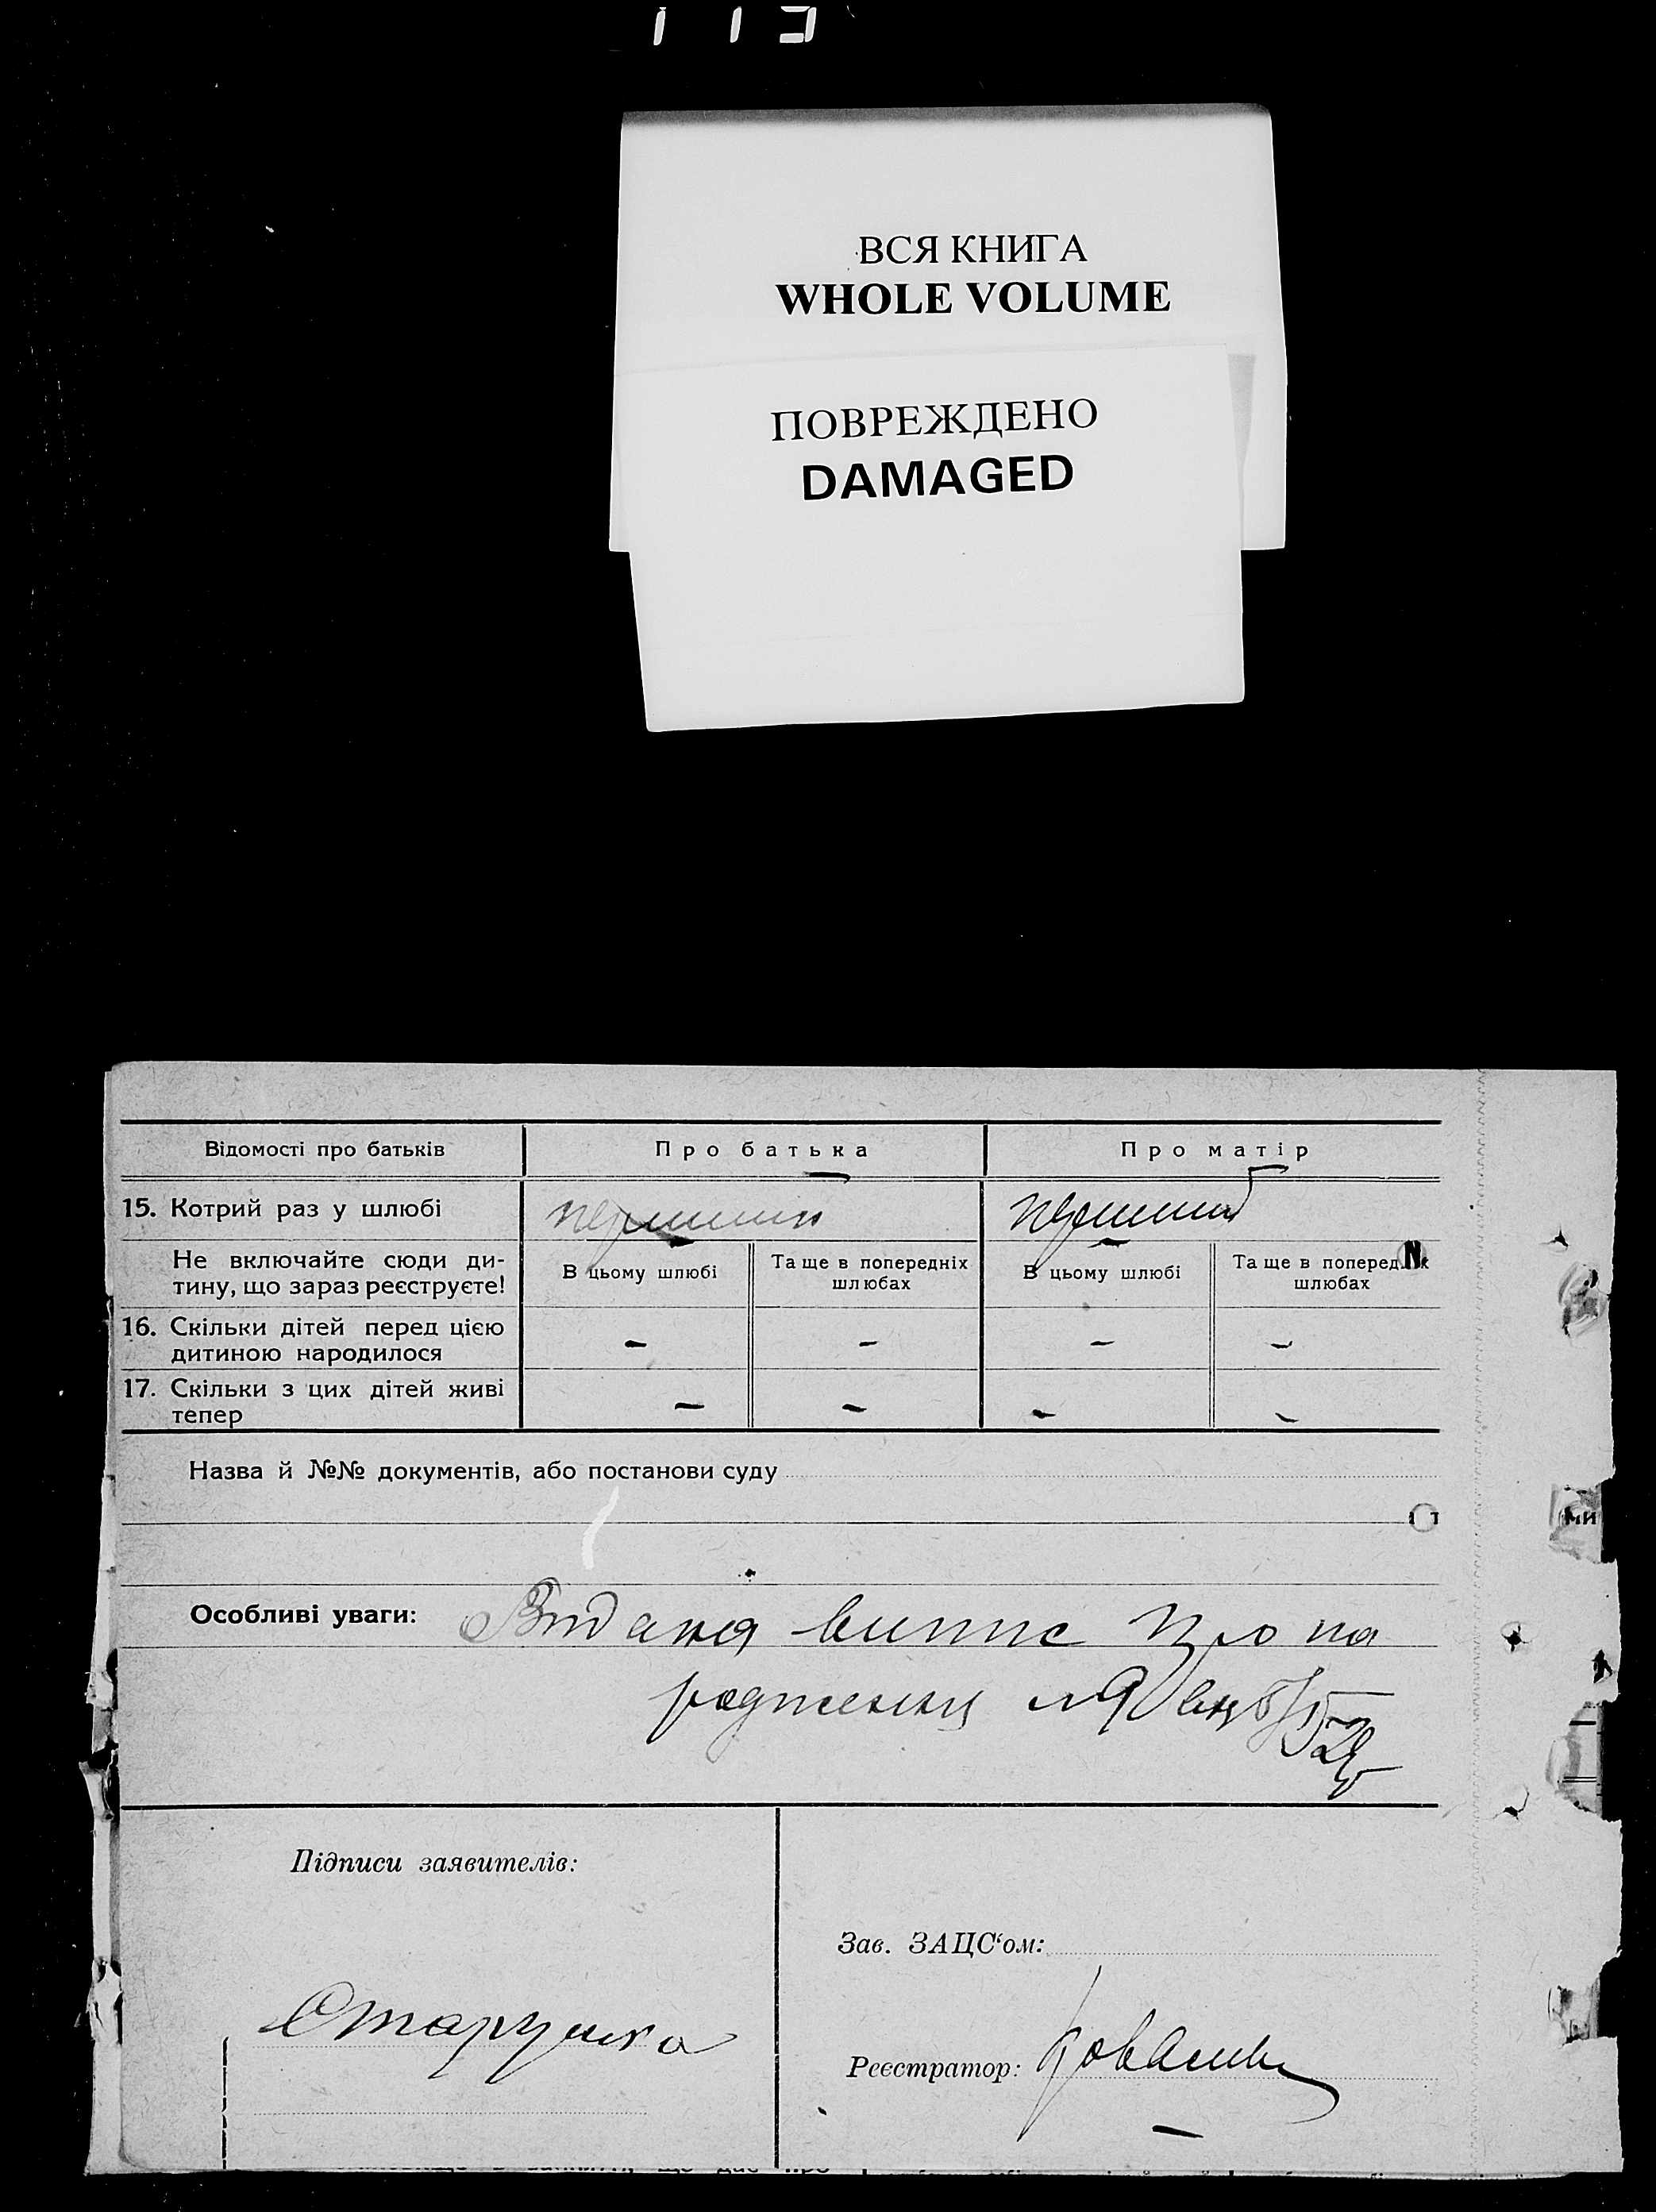 ВСЯ КНИГА
WHOLE VOLUME
ПОВРЕЖДЕНО
DAMAGED
Відомості про батьків
Про батька
Про матір
15. Котрий раз у шлюбі
перший
перший
Не включайте сюди ди-
тину, що зараз реєструєте!
В цьому шлюбі
Та ще в попередніх
шлюбах
В цьому шлюбі
Та ще в поперед
шлюбах
16. Скільки дітей перед цією
дитиною народилося
– – – –
17. Скільки з цих дітей живі
тепер
– – – –
Назва й №№ документів, або постанови суду
Особливі уваги:
випис про на
родження
Підписи заявителів:
Старушка
Зав. ЗАЦС‘ом:
Реєстратор: